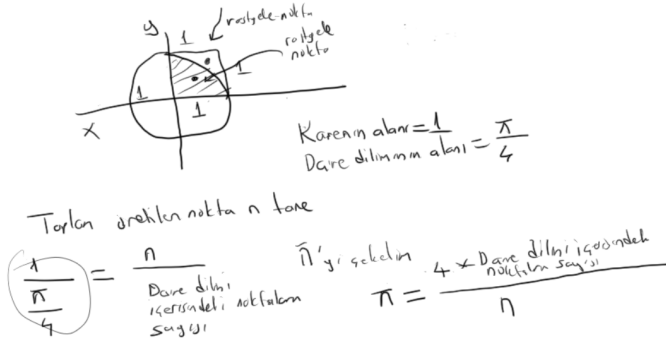 y
rastgele nokta
1
rastgele nokta
1
1
1
x
Karenin alanı = 1
Daire diliminin alanı = π/4
Toplam üretilen nokta n tane
1 / (π/4) = n / Daire dilimi içerisindeki noktaların sayısı
π'yi çekelim
π = 4 x Daire dilimi içerisindeki noktaların sayısı / n